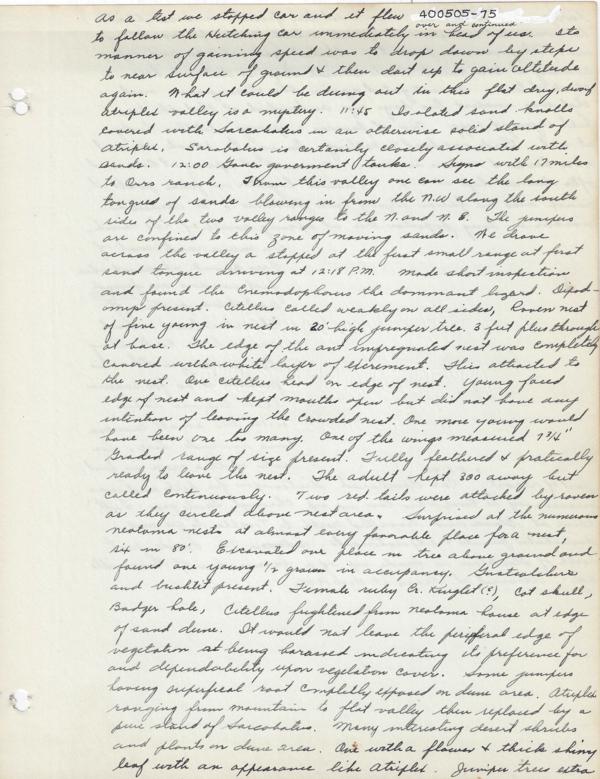 400505-75
As a test we stopped car and it flew over and continued
to follow the Hutching car immediately in head of us. Its
manner of gaining speed was to drop down by steps
to near surface of ground & then dart up to gain altitude
again. What it could be doing out in this flat dry, dwarf
atriplex valley is a mystery. 11:45 Isolated sand knolls
covered with Sarcobatus in an otherwise solid stand of
Atriplex. Sarcobatus is certainly closely associated with
sands. 12:00 government tanks. Signs with 17 miles
to Orrs ranch. From this valley one can see the long
tongues of sands blowing in from the N.W along the south
sides of the two valley ranges to the N. and N.E. The junipers
are confined to this zone of moving sands. We drove
across the valley & stopped at the first small range at first
sand tongue arriving at 12:18 P.M. Made short inspection
and found the Cnemodophorus the dominant lizard. Dipod-
omys present. Citellus called weakly on all sides, Raven nest
of five young in nest in 20' high juniper tree. 3 feet plus through
at base. The edge of the ant impregnated nest was completely
covered with a white layer of excrement. Flies attracted to
the nest. One citellus head on edge of nest. Young faced
edge of nest and kept mouths open but did not have any
intention of leaving the crowded nest. One more young would
have been one too many. One of the wings measured 7 3/4"
Graded range of size present. Fully feathered & pratically
ready to leave the nest. The adult kept 300 away but
called continuously. Two red tails were attacked by raven
as they circled above nest area. Surprised at the numerous
neotoma nests at almost every favorable place for a nest,
six in 80'. Excavated one place in tree above ground and
found one young 1/2 grown in occupancy. Gnatcatchers
and bushtit present. Female ruby Cr. Kinglet (c), Cat skull,
Badger hole, Citellus frightened from neotoma house at edge
of sand dune. It would not leave the periferal edge of
vegetation at being harassed indicating its preference for
and dependability upon vegetation cover. Some junipers
having superfical root completly exposed on dune area. Atriplex
ranging from mountain to flat valley then replaced by a
pure stand of Sarcobatus. Many interesting desert shrubs
and plants on dune area. One with a flower & thick shiny
leaf with an appearance like Atriplex. Juniper trees extra